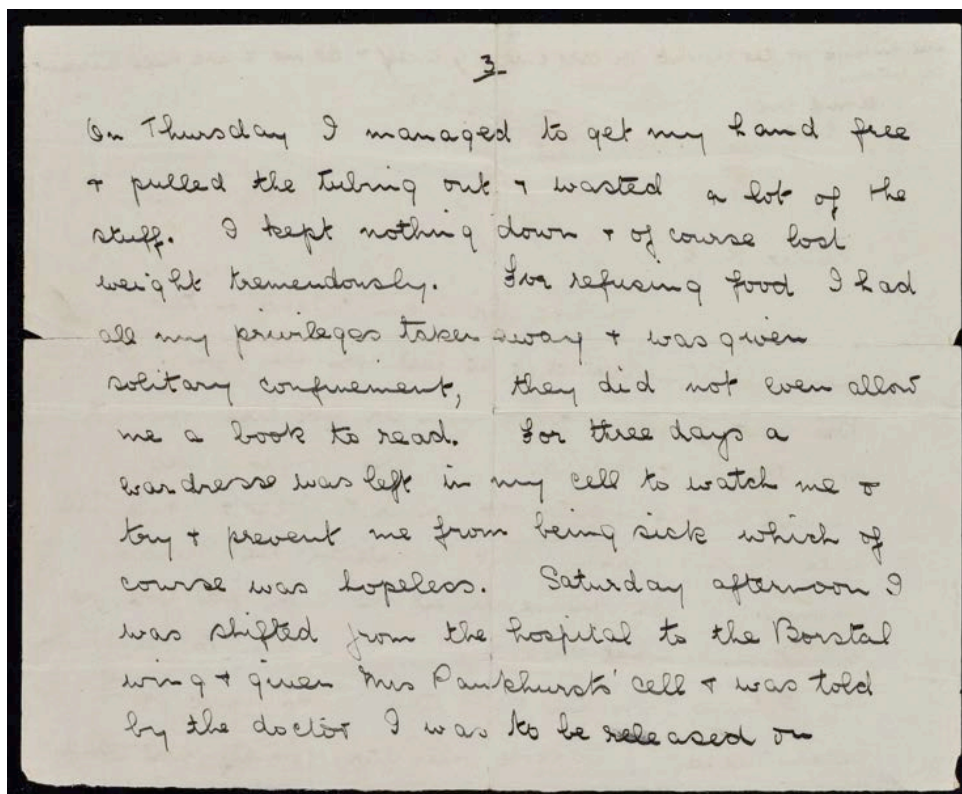 3
On Thursday I managed to get my hand free
+ pulled the tubing out + wasted a lot of the
stuff. I kept nothing down + of course lost
weight tremendously. For refusing food I had
all my privileges taken away + was given
solitary confinement, they did not even allow
me a book to read. For three days a
wardresse was left in my cell to watch me +
try + prevent me from being sick which of
course was hopeless. Saturday afternoon I
was shifted from the hospital to the Borstal
wing + given Mrs Pankhursts' cell + was told
by the doctor I was to be released on